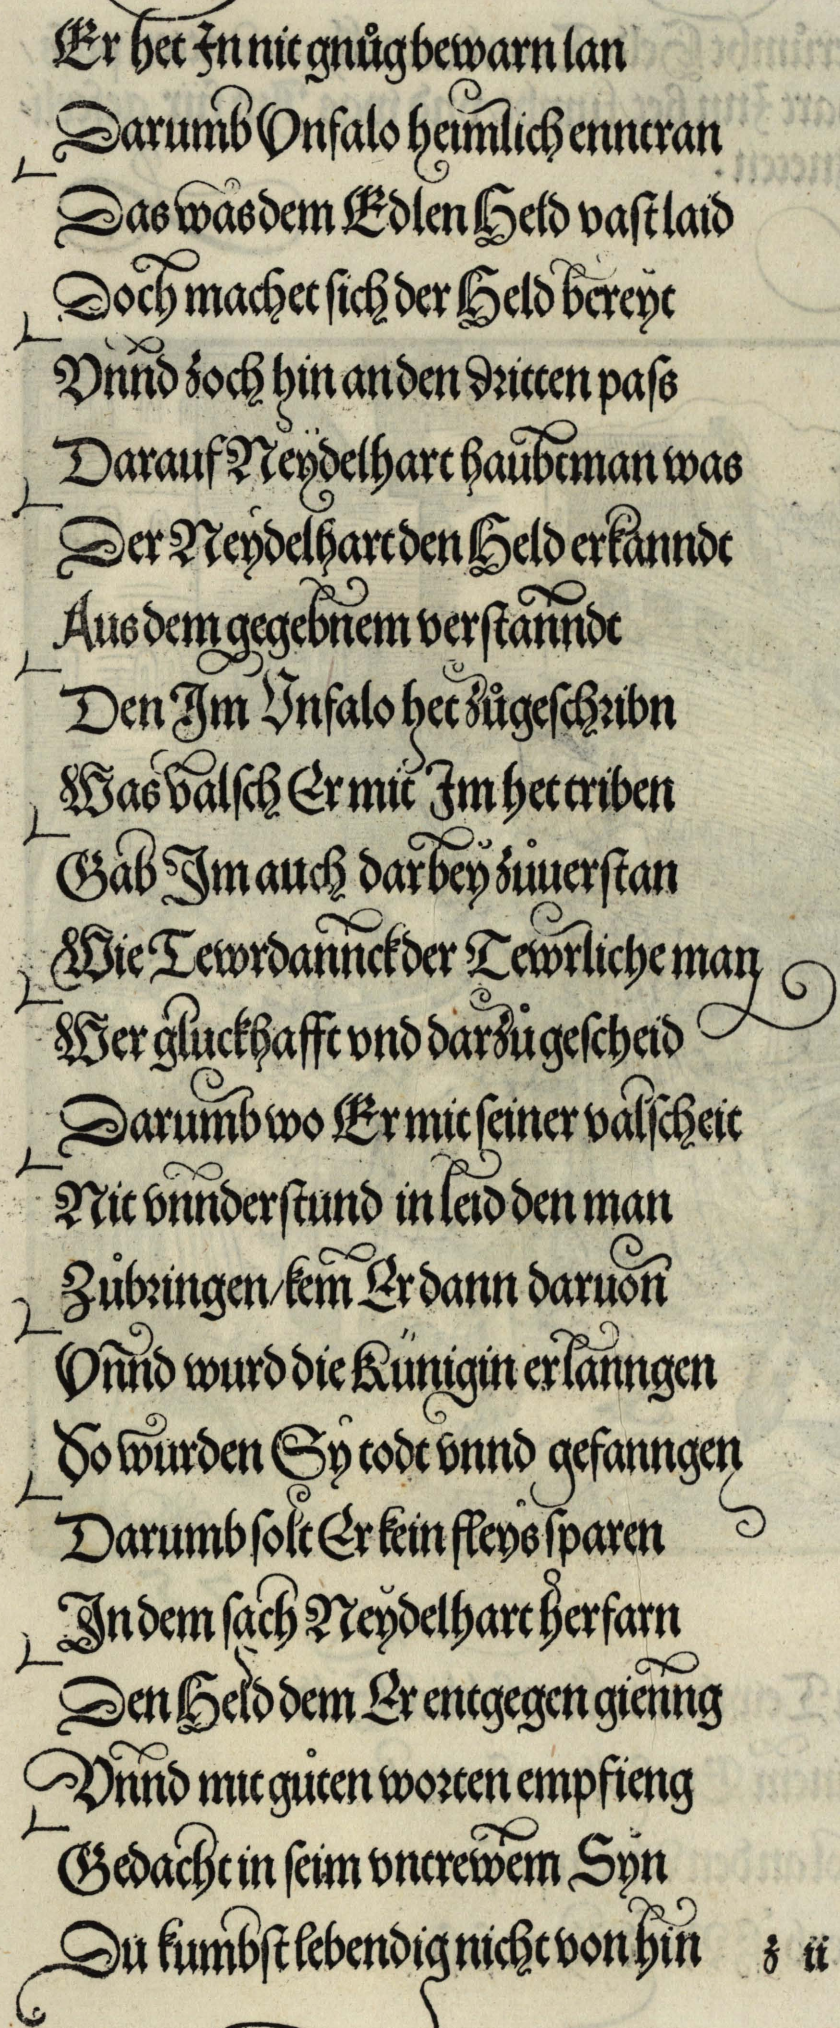 Er het In nit gnůg bewarn lan
Darumb Vnfalo heimlich enntran
Das was dem Edlen Held vast laid
Doch machet sich der Held bereyt
Vnnd zoch hin an den dritten paſs
Darauf Neydelhart haubtman was
Der Neydelhart den Held erkanndt
Aus dem gegebnem verstanndt
Den Im Vnfalo het zůgeschribn
Was valsch Er mit Im het triben
Gab Im auch darbey zůuerstan
Wie Tewrdannck der Tewrliche man
Wer gluckhafft vnd darzů gescheid
Darumb wo Er mit seiner valscheit
Nit vnnderstund in leid den man
Zůbringen/kem Er dann daruon
Vnnd wurd die Künigin erlanngen
So wurden Sy todt vnnd gefanngen
Darumb solt Er kein fleys sparen
In dem sach Neydelhart herfarn
Den Held dem Er entgegen gienng
Vnnd mit gůten worten empfieng
Gedacht in seim vntrewem Syn
Du kumbst lebendig nicht von hin
z ii